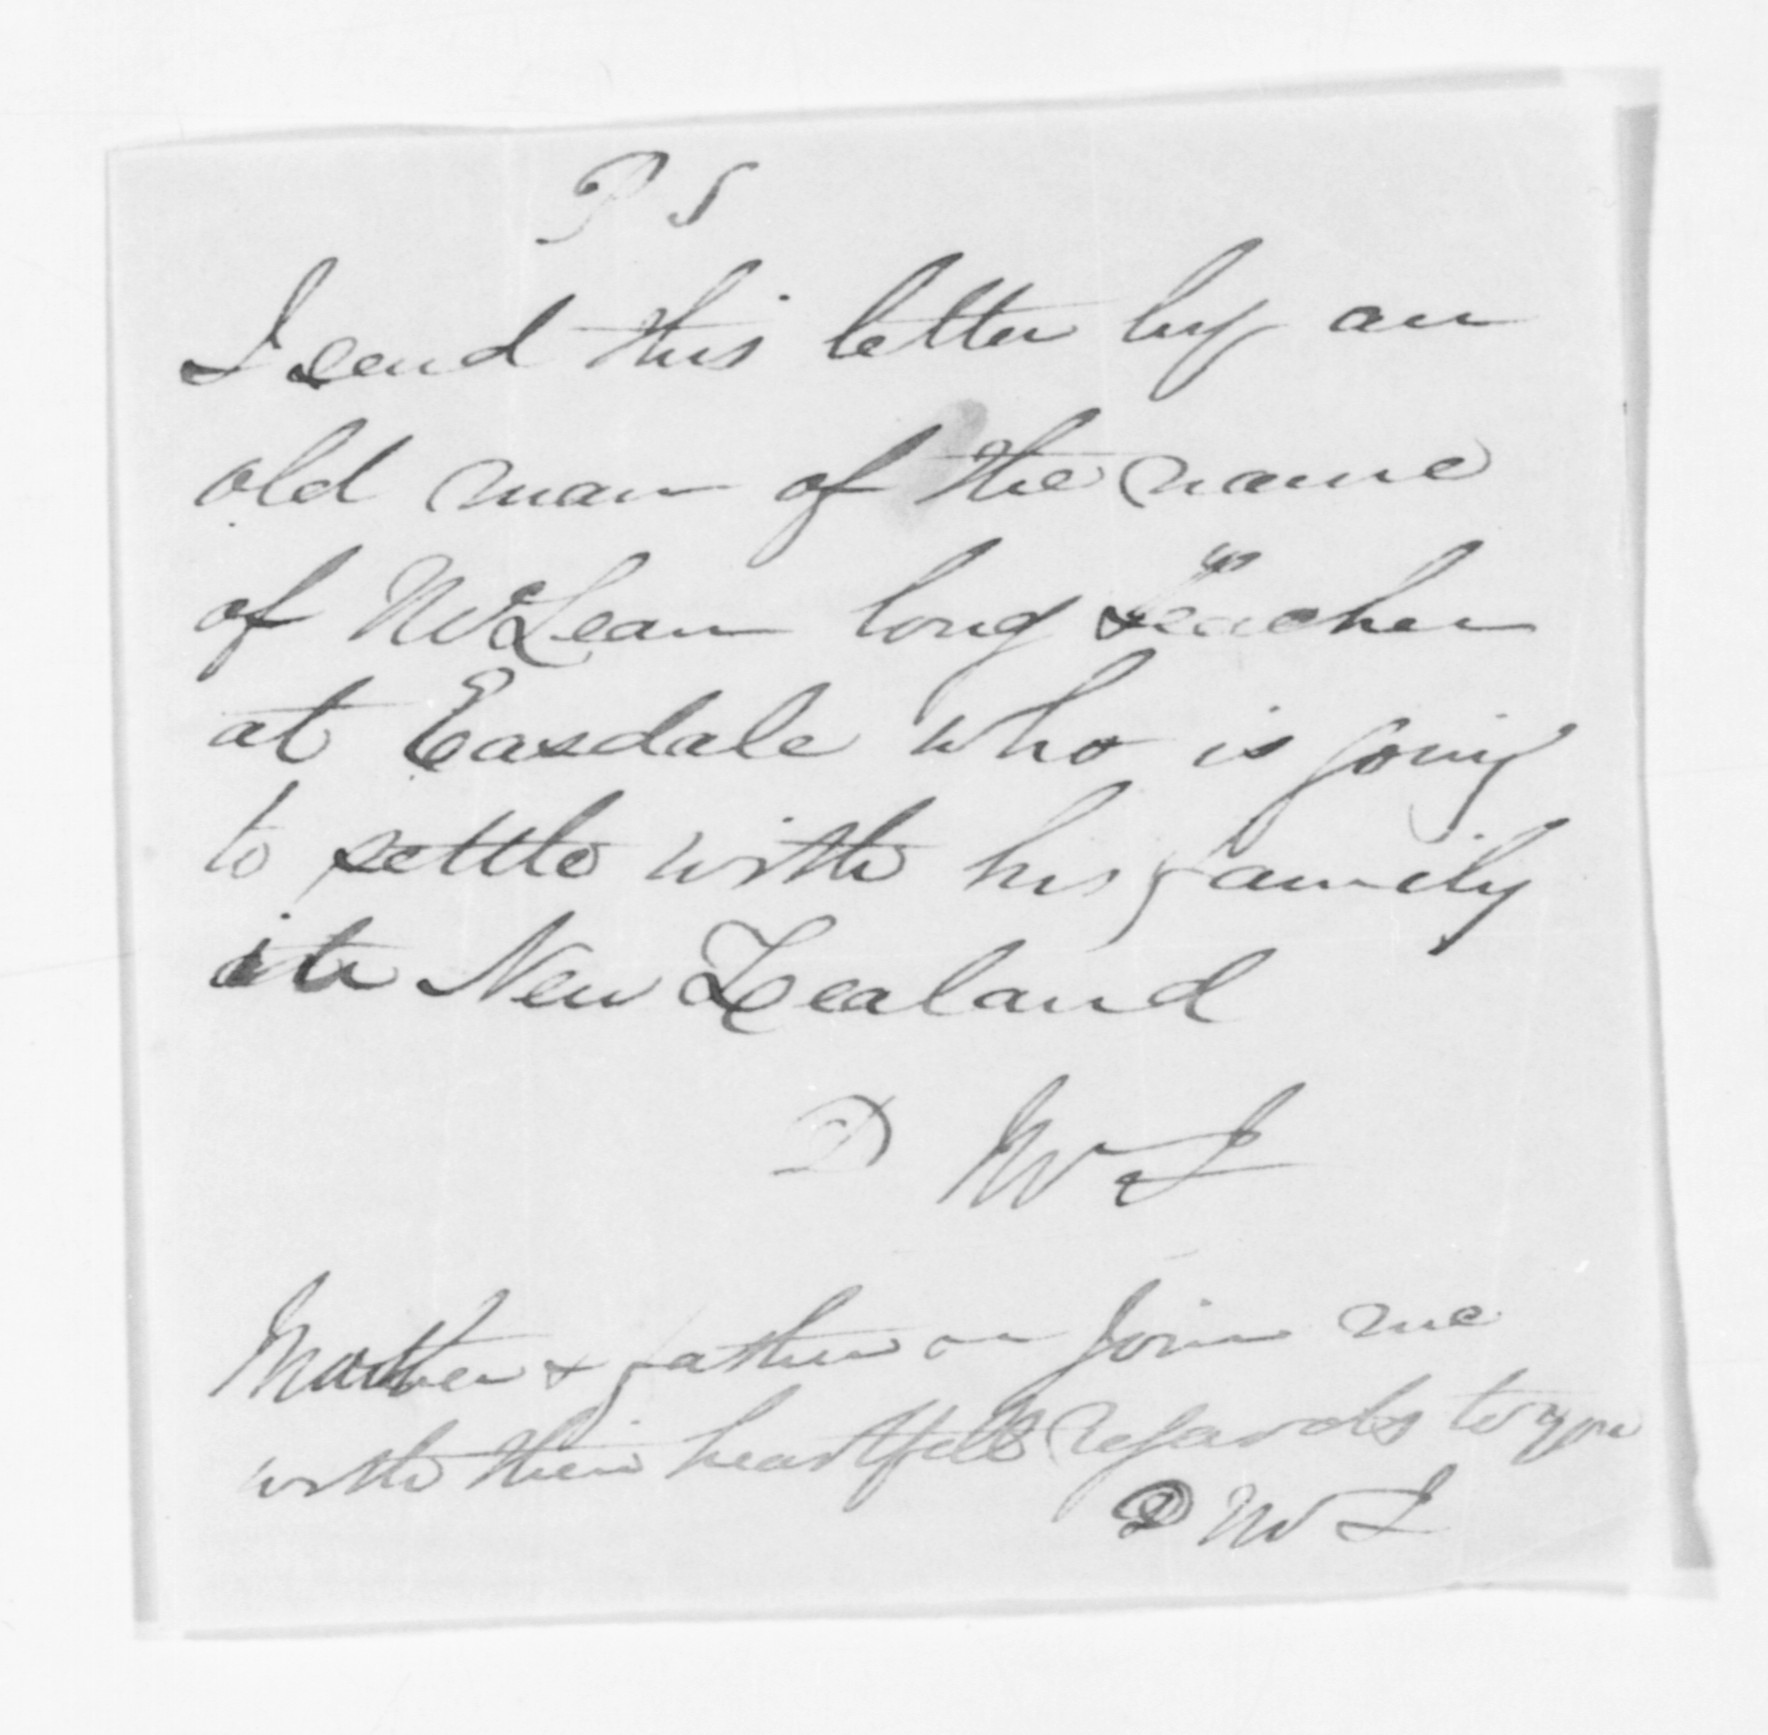 P S
I send this letter by an
old man of the name
of McLean long Teacher
at Easdale who is going
to settle with his family
in New Zealand
D McL
Mother & father in join me
with their heartfelt regards to you
D McL